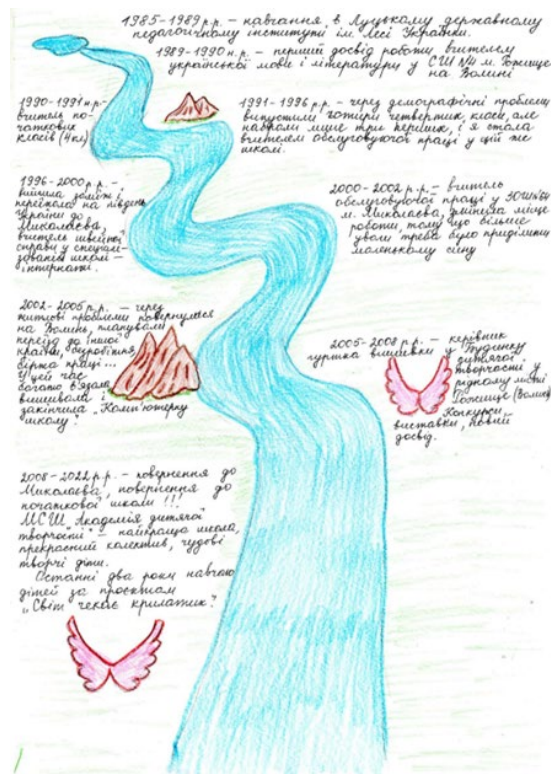 1985-1989 р.р. – навчання в Луцькому державному
педагогічному інституті ім. Лесі Українки.
1989-1990 н.р. – перший досвід роботи вчителем
української мови і літератури у СШ №4 м. Горохіще
на Волині
1990-1991 н.р.-
вчитель по-
чаткових
класів (4 кл)
1991-1996 р.р. – через демографічні проблеми
випустили чотири четвертих класи, але
набрали лише три перших, і я стала
вчителем обслуговуючої праці у цій же
школі.
1996-2000 р.р. –
вийшла заміж і
переїхала на південь
України до
Миколаєва,
вчитель швейної
справи у спеціалі-
зованій школі –
інтернаті.
2000-2002 р.р. – вчитель
обслуговуючої праці у ЗОШ №64
м. Миколаєва, змінила місце
роботи, тому що більше
уваги треба було приділити
маленькому сину
2002-2005 р.р. – через
житлові проблеми повернулися
на Волинь, планували
переїзд до іншої
країни, безробіття,
біржа праці...
У цей час
багато в'язала,
вишивала і
закінчила "Комп'ютерну
школу".
2005-2008 р.р. – керівник
гуртка вишивки у "Будинку
дитячої
творчості" у
рідному місті
(Волинь)
Конкурси,
виставки, новий
досвід.
2008-2022 р.р. – повернення до
Миколаєва, повернення до
початкової школи !!!
МСШ "Академія дитячої
творчості" – найкраща школа,
прекрасний колектив, чудові
творчі діти.
Останні два роки навчаю
дітей за проєктом
"Світ чекає крилатих".